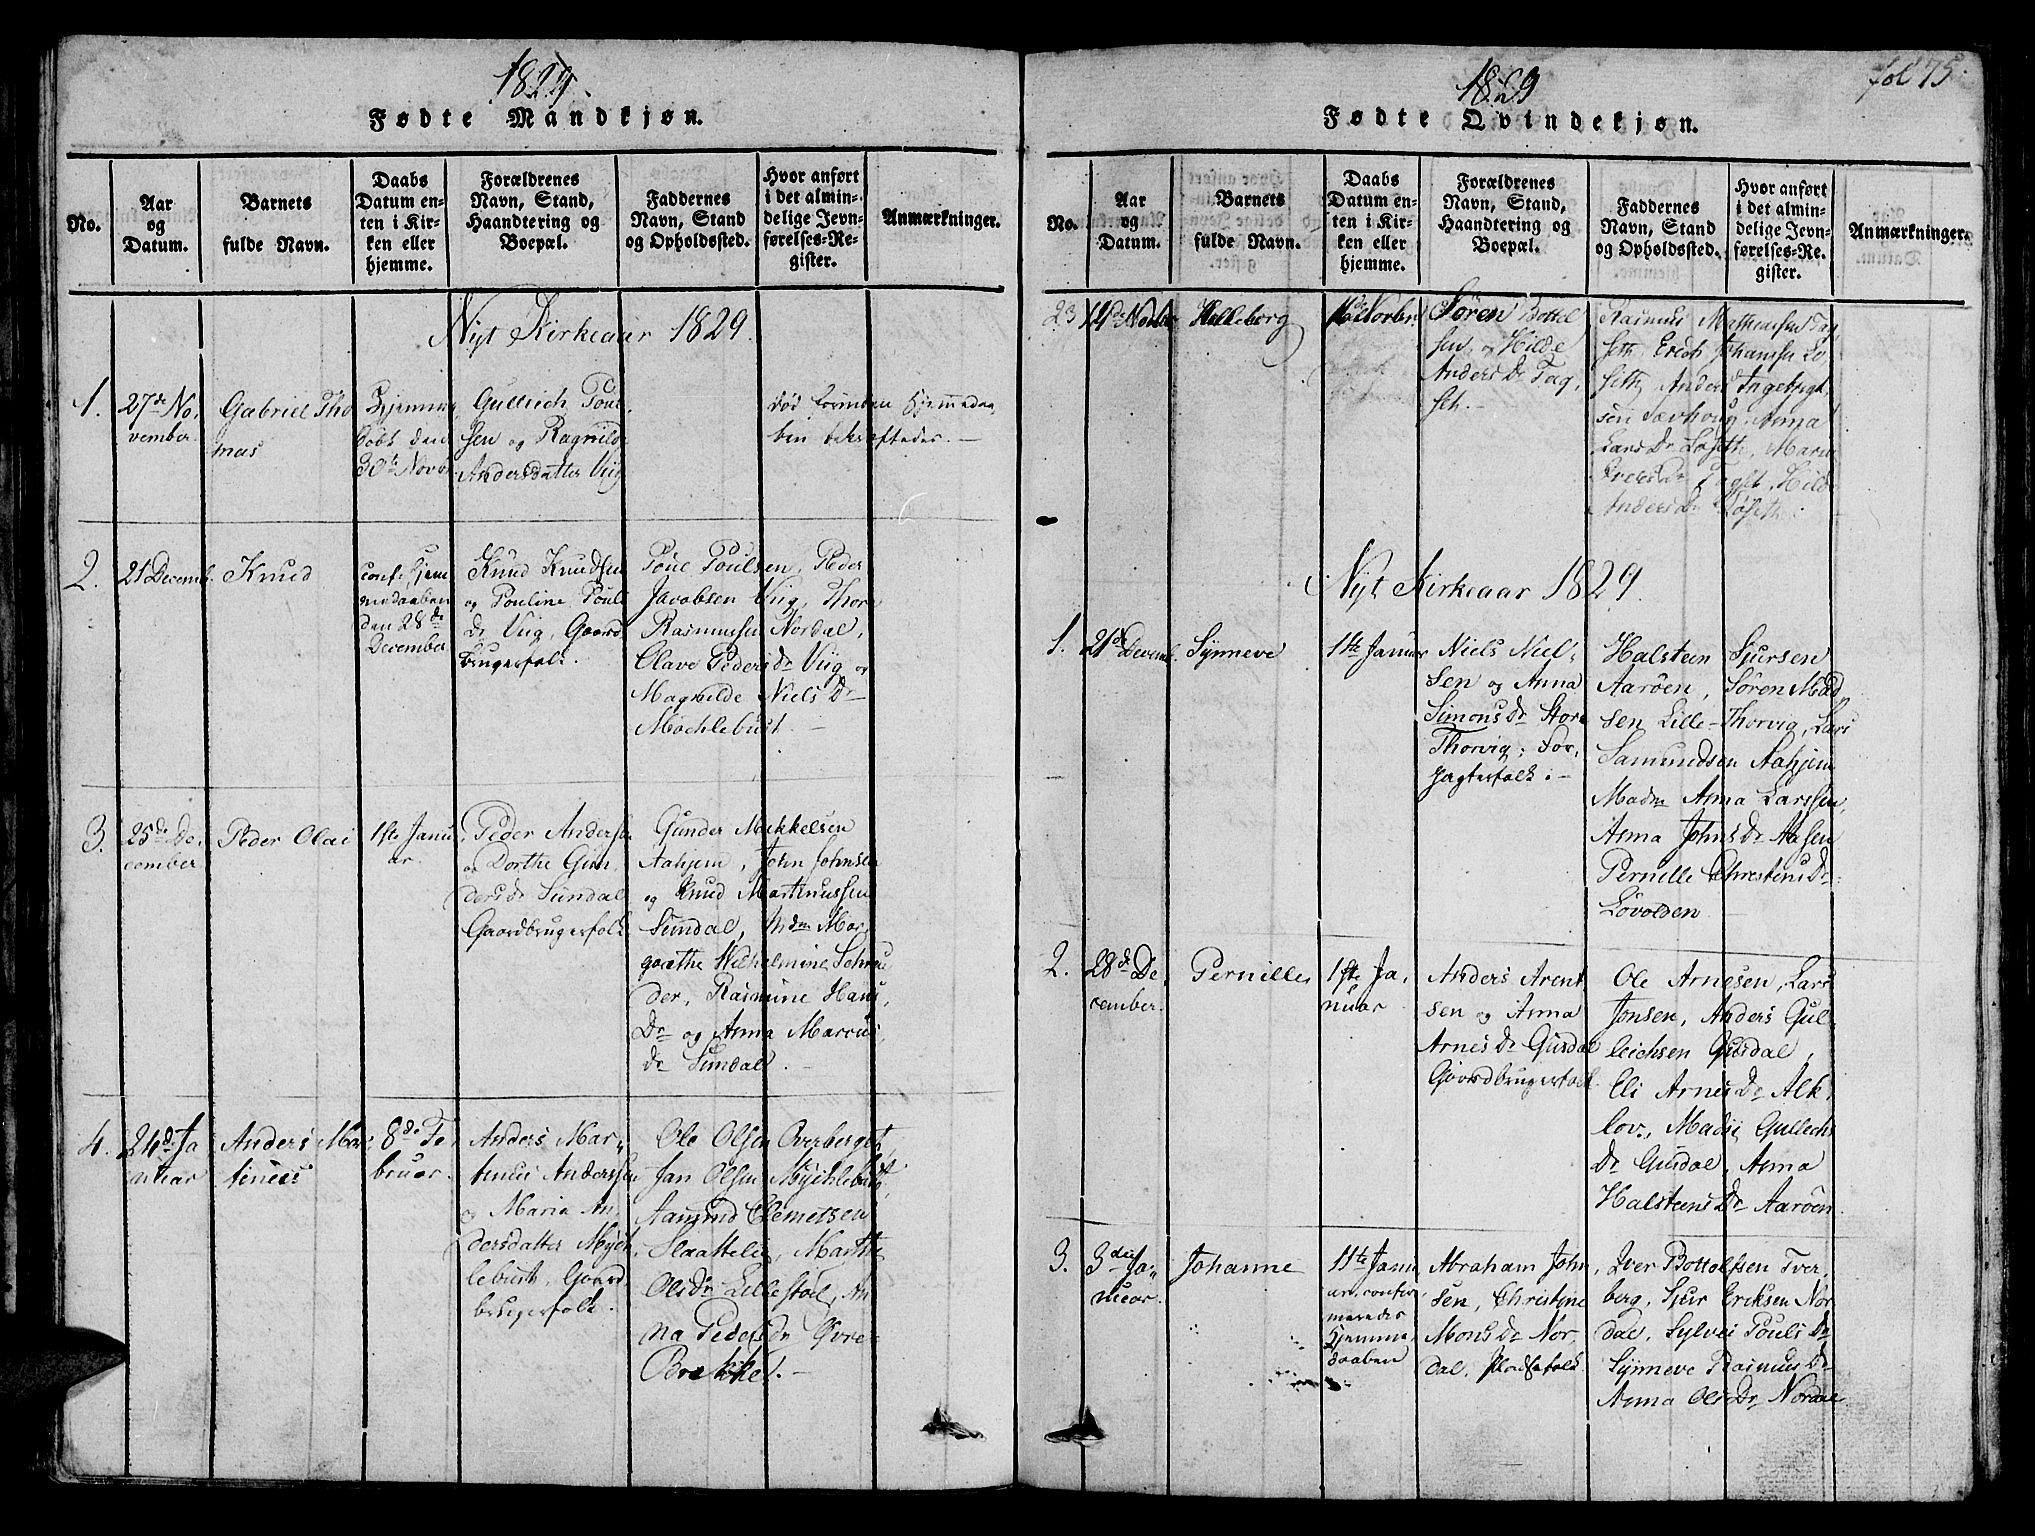 1829.
Fødte Mandkjøn.
No.
Aar
og
Datum.
Barnets
fulde Navn.
Daabs
Datum en-
ten i Kir-
ken eller
hjemme.
Forældrenes
Navn, Stand,
Haandtering og
Boepæl.
Faddernes
Navn, Stand
og Opholdssted.
Hvor anført
i det almin-
delige Jevn-
førelses-Re-
gister.
Anmærkninger.
Nyt Kirkeaar 1829.
1.
27de No-
vember.
Gabriel Tho
mas
Hjemme
døbt den
30te Novbr
Gullich Poul
sen og Ragnild
Andersdatter Viig
død forinden Hjemmedaa
ben bekræftedes.
2.
21 Decemb.
Knud
conf. Hjem
medaaben
den 28de
December
Knud Knudsen
og Pouline Pouls
Dr Viig, Gaard
brugerfolk.
Poul Poulsen, Peder
Jacobsen Viig, Thore
Rasmussen Nordal,
Olave Peders Dr Viig og
Magnilde Niels Dr
Mochlebust.
3.
25de De-
cember
Peder Olai
1ste Janu
ar.
Peder Anderse
og Dorthe Gun
ders Dr Sundal
Gaardbrugerfolk
Gunder Mikkelsen
Aahjem, John Johnsen
og Knud Martinussen
Sundal, Mdm Mar
grethe Wilhelmine Schrø
der, Rasmine Hans
Dr og Anna Marcus
Dr Sundal.
4.
24de Ja
nuar
Anders Mar
tinus
8de Fe
bruar.
Anders Mar-
tinus Anderssen
og Maria An
dersdatter Mych
lebust, Gaard
brugerfolk.
Ole Olsen Overberget,
Jan Olsen Mychlebust,
Aamund Clemetsen
Slaattelie, Marthe
Ols Dr Lillestøl, An
na Peders Dr Øvre-
Brekke.
1829
fol 75.
Fødte Qvindekjøn.
No.
Aar
og
Datum.
Barnets
fulde Navn.
Daabs
Datum en-
ten i Kir-
ken eller
hjemme.
Forældrenes
Navn, Stand,
Haandtering og
Boepæl.
Faddernes
Navn, Stand
og Opholdssted.
Hvor anført
i det almin-
delige Jevn-
førelses-Re-
gister.
Anmærkninger.
23
14de Novbr
Helleborg
16de Novbr.
Søren Bottel
sen og Hilde
Anders Dr Tag
seth.
Rasmus Mathiassen Tag
seth, Erich Johanssen Lø
seth, Anders Ingebrigt
sen Sæshoug, Anna
Lars Dr Løseth, Marie
Ivers Dr Tagset, Hilde
Anders Dr Løseth.
Nyt Kirkeaar 1829.
1.
21de Decemb.
Synneve
1ste Januar
Niels Niel-
sen og Anna
Simons Dr Store
Thorvig, For-
pagterfolk.
Halsteen Sjursen
Aarøen, Søren Mad
sen Lille-Thorvig, Lars
Samundsen Aahjem
Madm Anna Larssen,
Anna Johns Dr Aasen
Pernille Christens Dr
Løvolden
2.
28de De
cember.
Pernille
1ste Ja-
nuar
Anders Arent
sen og Anna
Arnes Dr Gusdal
Gaardbrugerfolk.
Ole Arnesen, Lars
Jonsen, Anders Gul
leichsen Gusdal,
Eli Arnes Dr Alk
lov, Madsi Gullechs
Dr Gusdal, Anna
Halsteens Dr Aarøen
3.
3die Ja-
nuar.
Johanne
11te Janu
ar, confir
meredes
Hjemme
daaben
Abraham John
sen, Christine
Mons Dr Nor
dal, Pladsefolk.
Iver Bottolfsen Tver
berg, Sjur Eriksen Nor
dal, Sylvei Pouls Dr
Synneve Rasmus Dr
Anna Ols Dr Nordal